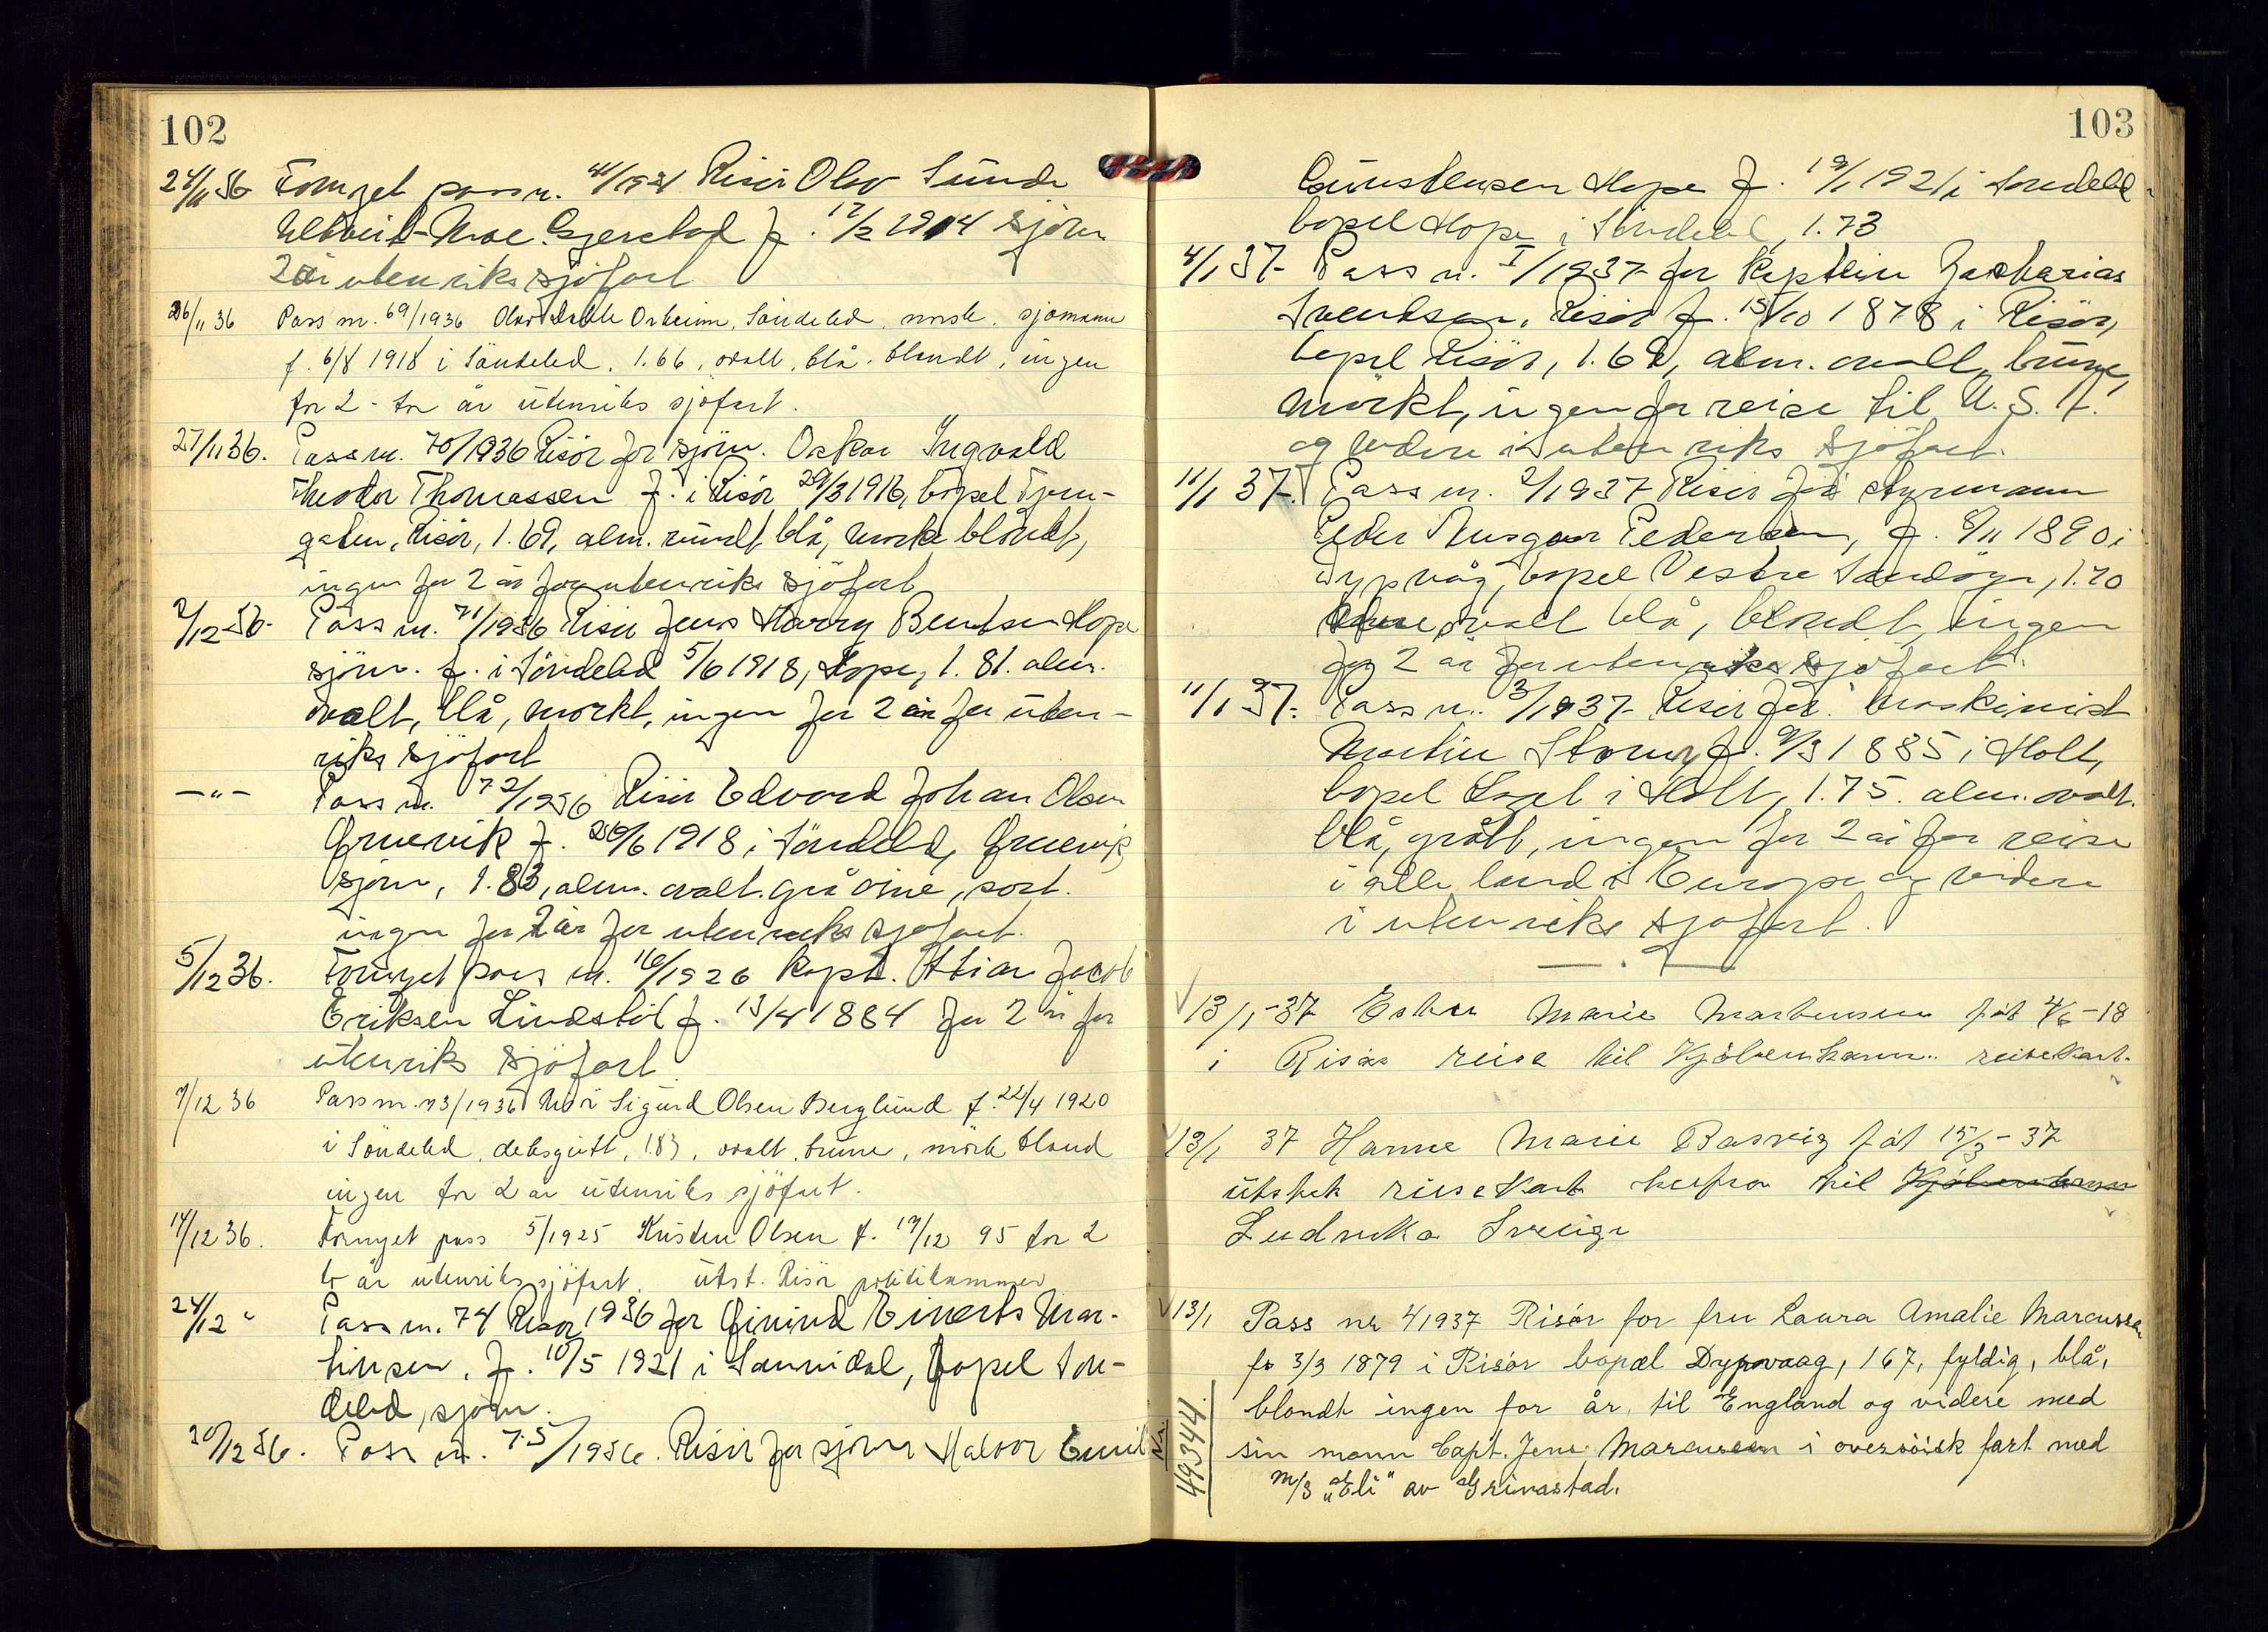 102
24/11 36 Fornyet pass nr. 41/1931 Risör Olav Sunde
Moe Gjerstad f. 12/2 1914 sjöm
2 år utenriks sjöfart
26/11 36 Pass nr. 69/1936 Olav Söndeled, norsk, sjömann
f. 6/8 1918 i Söndeled. 1.66, ovalt, blå, blondt, ingen
for 2 - to år utenriks sjöfart.
27/11 36. Pass nr. 70/1936 Risör for sjöm. Oskar Ingvald
Theodor Thomassen f. i Risör 29/3 1916, bopel Tjen-
gaten, Risör, 1.69, alm. rundt blå, mörke blondt,
ingen for 2 år for utenriks sjöfart
2/12 36. Pass nr. 71/1936 Risör Jens Harry Bentsen Hope
sjöm. f. i Söndeled 5/6 1918, Hope, 1.81. alm.
ovalt, blå, mörkt, ingen for 2 år for uten-
riks sjöfart
—"— Pass nr. 72/1936 Risör Edvard Johan Olsen
f. 26/6 1918 i Söndeled,
sjöm, 1.83, alm. ovalt. grå öine, sort.
ingen for 2 år for utenriks sjöfart.
5/12 36. Fornyet pass nr. 16/1926 Kapt. Jacob
Eriksen Lindstöl f. 13/4 1884 for 2 år for
utenriks sjöfart.
7/12 36 Pass nr. 73/1936 Sigurd Olsen Berglund f. 22/4 1920
i Söndeled, deksgutt, 1.83, ovalt, brune, mörk blond
ingen for 2 år utenriks sjöfart.
14/12 36. Fornyet pass 5/1925 Kristen Olsen f. 19/12 95 for 2
to år utenriks sjöfart. utst. Risör politikammer
24/12 " Pass nr. 74 Risör 1936 for Einerts Mar-
tinsen. f. 10/5 1921 i Sannidal, bopel Sön-
deled, sjöm.
30/12 36. Pass nr. 75/1936. Risör for sjöm Halvor Emil
103
Gunstensen Hope f. 19/1 1921 i Söndeled
bopel Hope i Söndeled, 1.73
4/1 37- Pass nr. I/1937 for Kaptein Zacharias
Svendsen, Risör f. 15/10 1878 i Risör,
bopel Risör, 1.62, alm. ovalt, brune,
mörkt, ingen for reise til U.S.A.
og videre i utenriks sjöfart.
11/1 37-. Pass nr. 2/1937 Risör for styrmann
Peder Pedersen, f. 8/11 1890 i
Dypvåg, bopel Vestre Sandöya, 1.70
ovalt blå, blondt, ingen
for 2 år for utenriks sjöfart.
11/1 37-. Pass nr. 3/1937- Risör for maskinist
Martin Storm f. 9/3 1885 i Holt,
bopel i Holt, 1.75. alm. ovalt.
blå, grått, ingen for 2 år for reise
i alle land i Europa og videre
i utenriks sjöfart.
13/1-37 Ester Marie Martensen föt 4/6-18
i Risör reise til Kjöbenhavn. reisekort.
13/1 37 Hanne Marie föt 15/3-37
utstet reisekort herfra til Kjöbenhavn
Ludvika Sverige
13/1 Pass nr 4 1937 Risör for fru Laura Amalie Marcussen
fö 3/3 1879 i Risör bopæl Dypvaag, 167, fyldig, blå,
blondt ingen for år, til England og videre med
sin mann Capt. Jens Marcussen i oversöisk fart med
M/S "Eli" av Grimastad.
Nr. 49344.